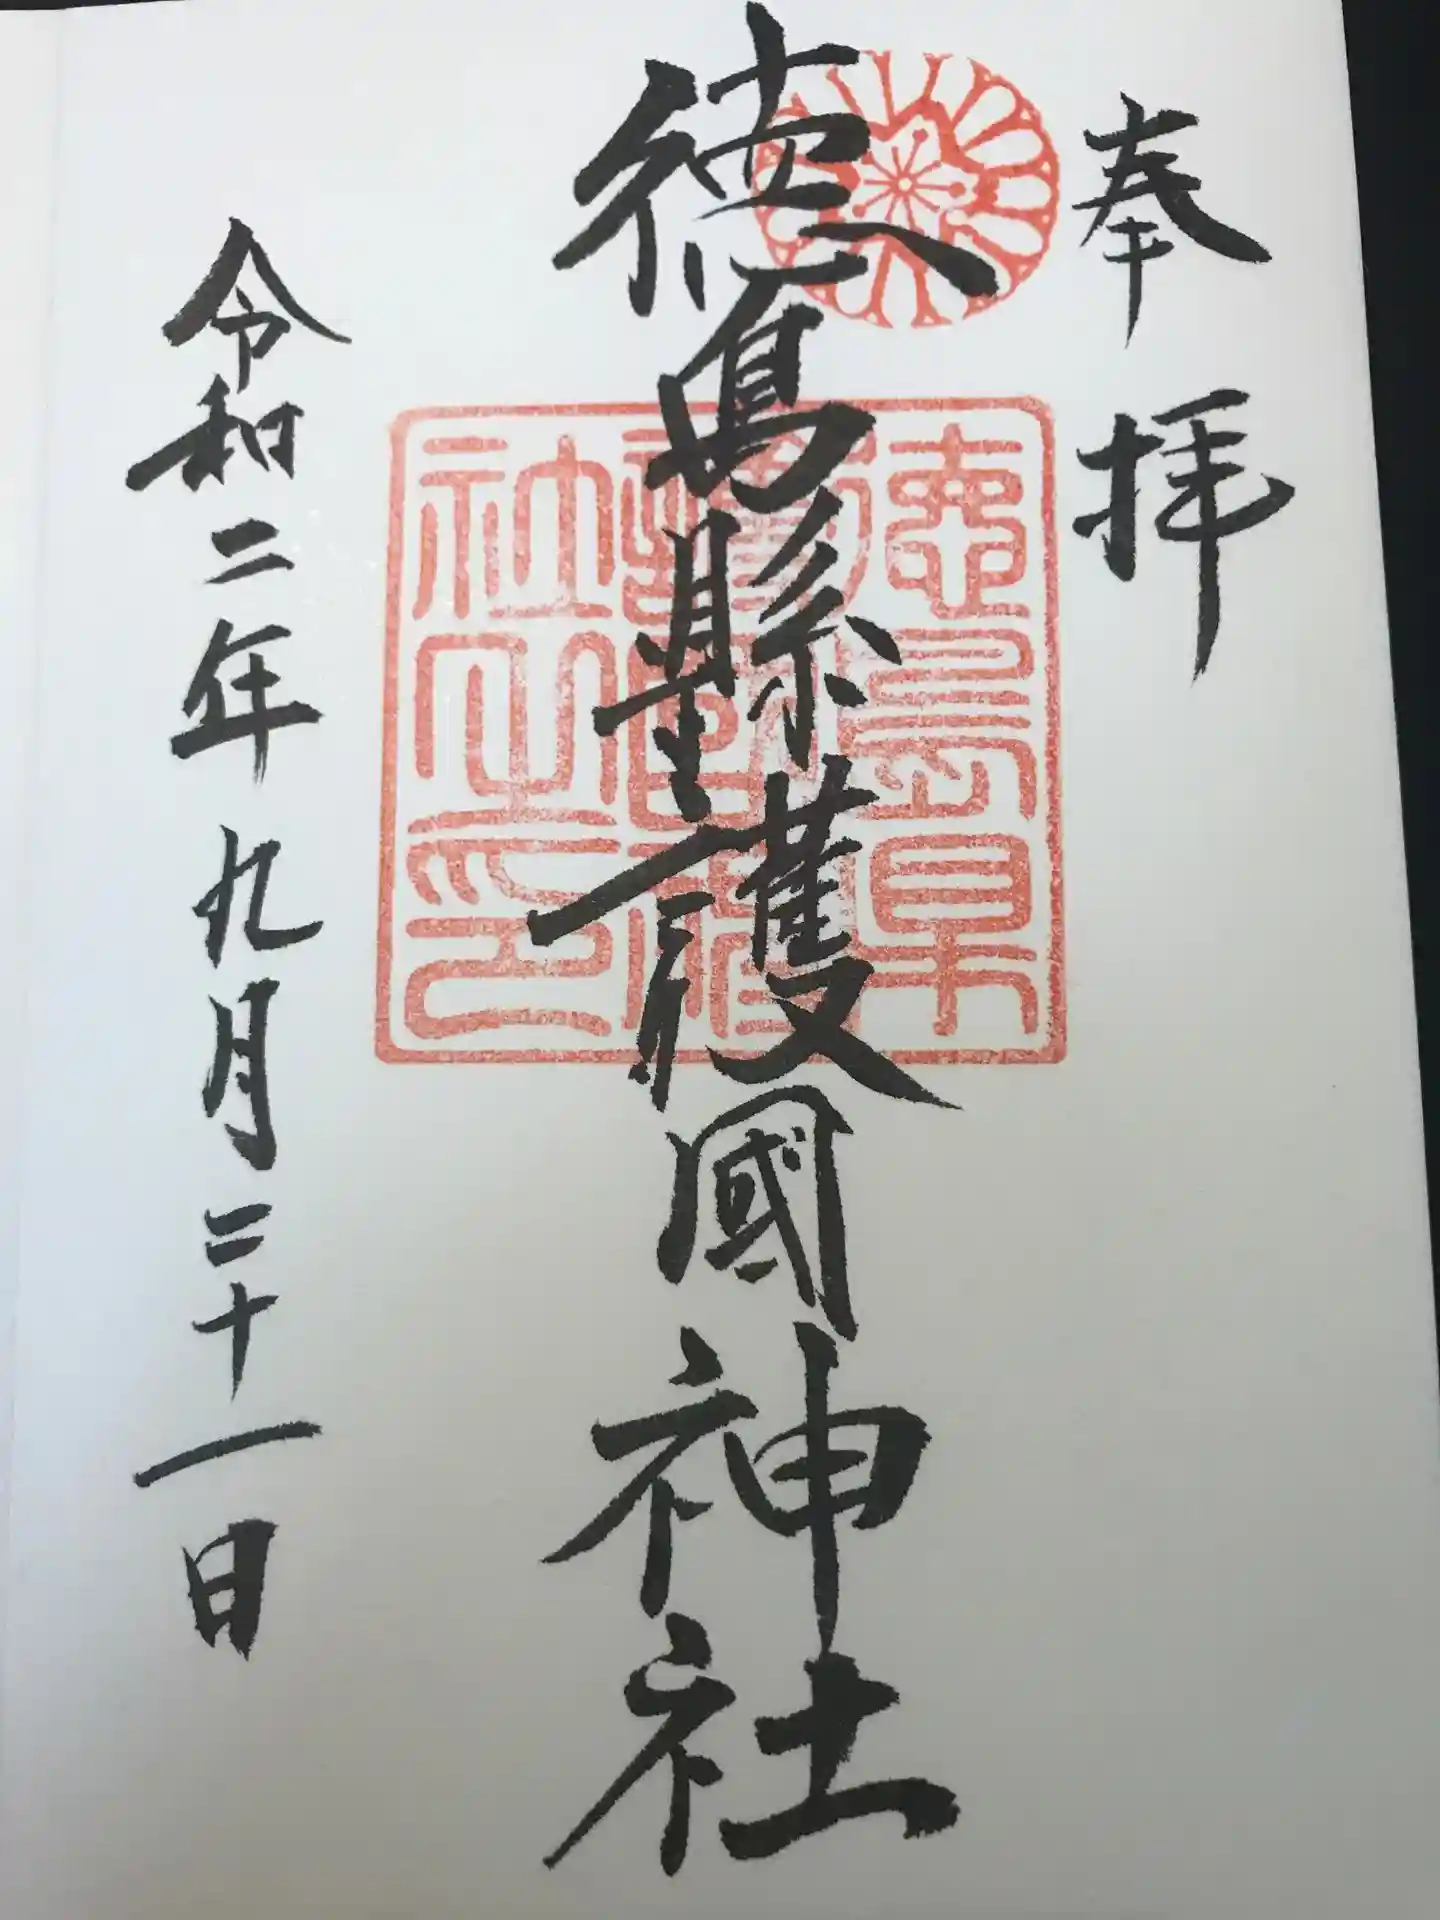 奉拝
徳島縣護國神社
徳島県
護国神
社之印
令和二年九月二十一日